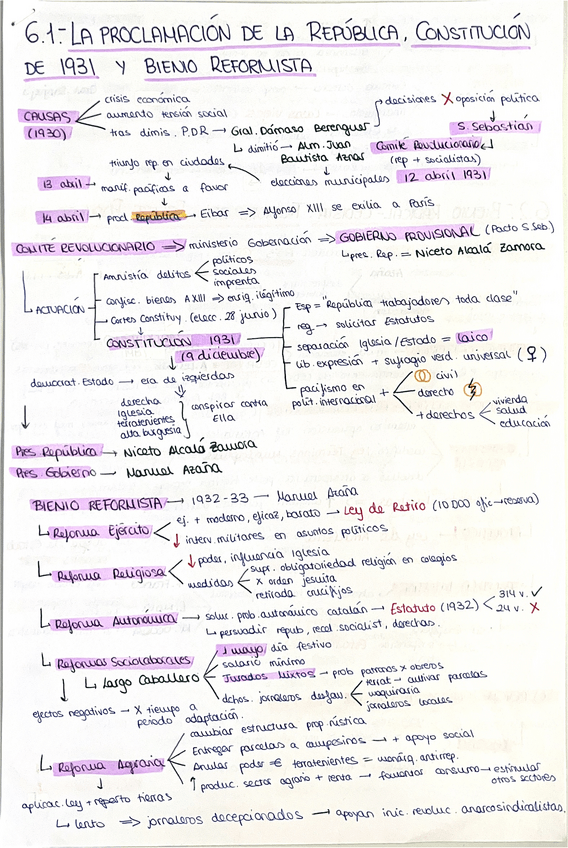 6.1.- LA PROCLAMACIÓN DE LA REPÚBLICA, CONSTITUCIÓN
DE 1931 Y BIENIO REFORMISTA
CAUSAS
(1930)
crisis económica
aumento tensión social
tras dimis. P.D.R → Gral. Dámaso Berenguer
decisiones X oposición política
S. Sebastián
↳ dimitió → Alm. Juan
Bautista Aznar
Comité Revolucionario
(rep + socialistas)
triunfo rep en ciudades
elecciones municipales 12 abril 1931
13 abril → manif. pacíficas a favor
14 abril → procl. República → Eibar => Alfonso XIII se exilia a París
COMITÉ REVOLUCIONARIO => ministerio Gobernación => GOBIERNO PROVISIONAL (Pacto S. Seb.)
↳ pres. Rep. = Niceto Alcalá Zamora
↳ ACTUACIÓN
Amnistía delitos
políticos
sociales
imprenta
Confisc. bienes A XIII => enriq. ilegítimo
Cortes Constituy. (elecc. 28 junio)
CONSTITUCIÓN 1931
(9 diciembre)
Esp = "República trabajadores toda clase"
reg → solicitar Estatutos
separación Iglesia / Estado = laico
lib. expresión + sufragio verd. universal (♀)
pacifismo en
polit. internacional +
civil
derecho
+ derechos
vivienda
salud
educación
democrat. Estado → era de izquierdas
derecha
Iglesia
terratenientes
alta burguesía
conspirar contra
Ella
Pres. República → Niceto Alcalá Zamora
Pres. Gobierno → Manuel Azaña
BIENIO REFORMISTA → 1932-33 → Manuel Azaña
↳ Reforma Ejército
ej. + moderno, eficaz, barato → Ley de Retiro (10 000 ofic → reserva)
↓ interv. militares en asuntos políticos
↳ Reforma Religiosa
↓ poder, influencia Iglesia
medidas
supr. obligatoriedad religión en colegios
X orden jesuita
retirada crucifijos
↳ Reforma Autonómica → soluc. prob. autonómico catalán → Estatuto (1932)
314 v. ✓
24 v. X
↳ persuadir repub, recel. socialist, derechas.
↳ Reformas Sociolaborales
↳ Largo Caballero
1 mayo día festivo
salario mínimo
Jurados Mixtos → prob patronos x obreros
dchos. jornaleros desfav.
cultivar parcelas
maquinaria
jornaleros locales
efectos negativos → X tiempo a
periodo adaptación.
↳ Reforma Agraria
cambiar estructura prop. rústica
Entregar parcelas a campesinos → + apoyo social
Anular poder € terratenientes = monárq. antirrep.
↑ produc. sector agrario + renta → fomentar consumo → estimular
otros sectores
aplicac. ley + reparto tierras
↳ lento => jornaleros decepcionados → apoyan inic. revoluc. anarcosindicalistas.